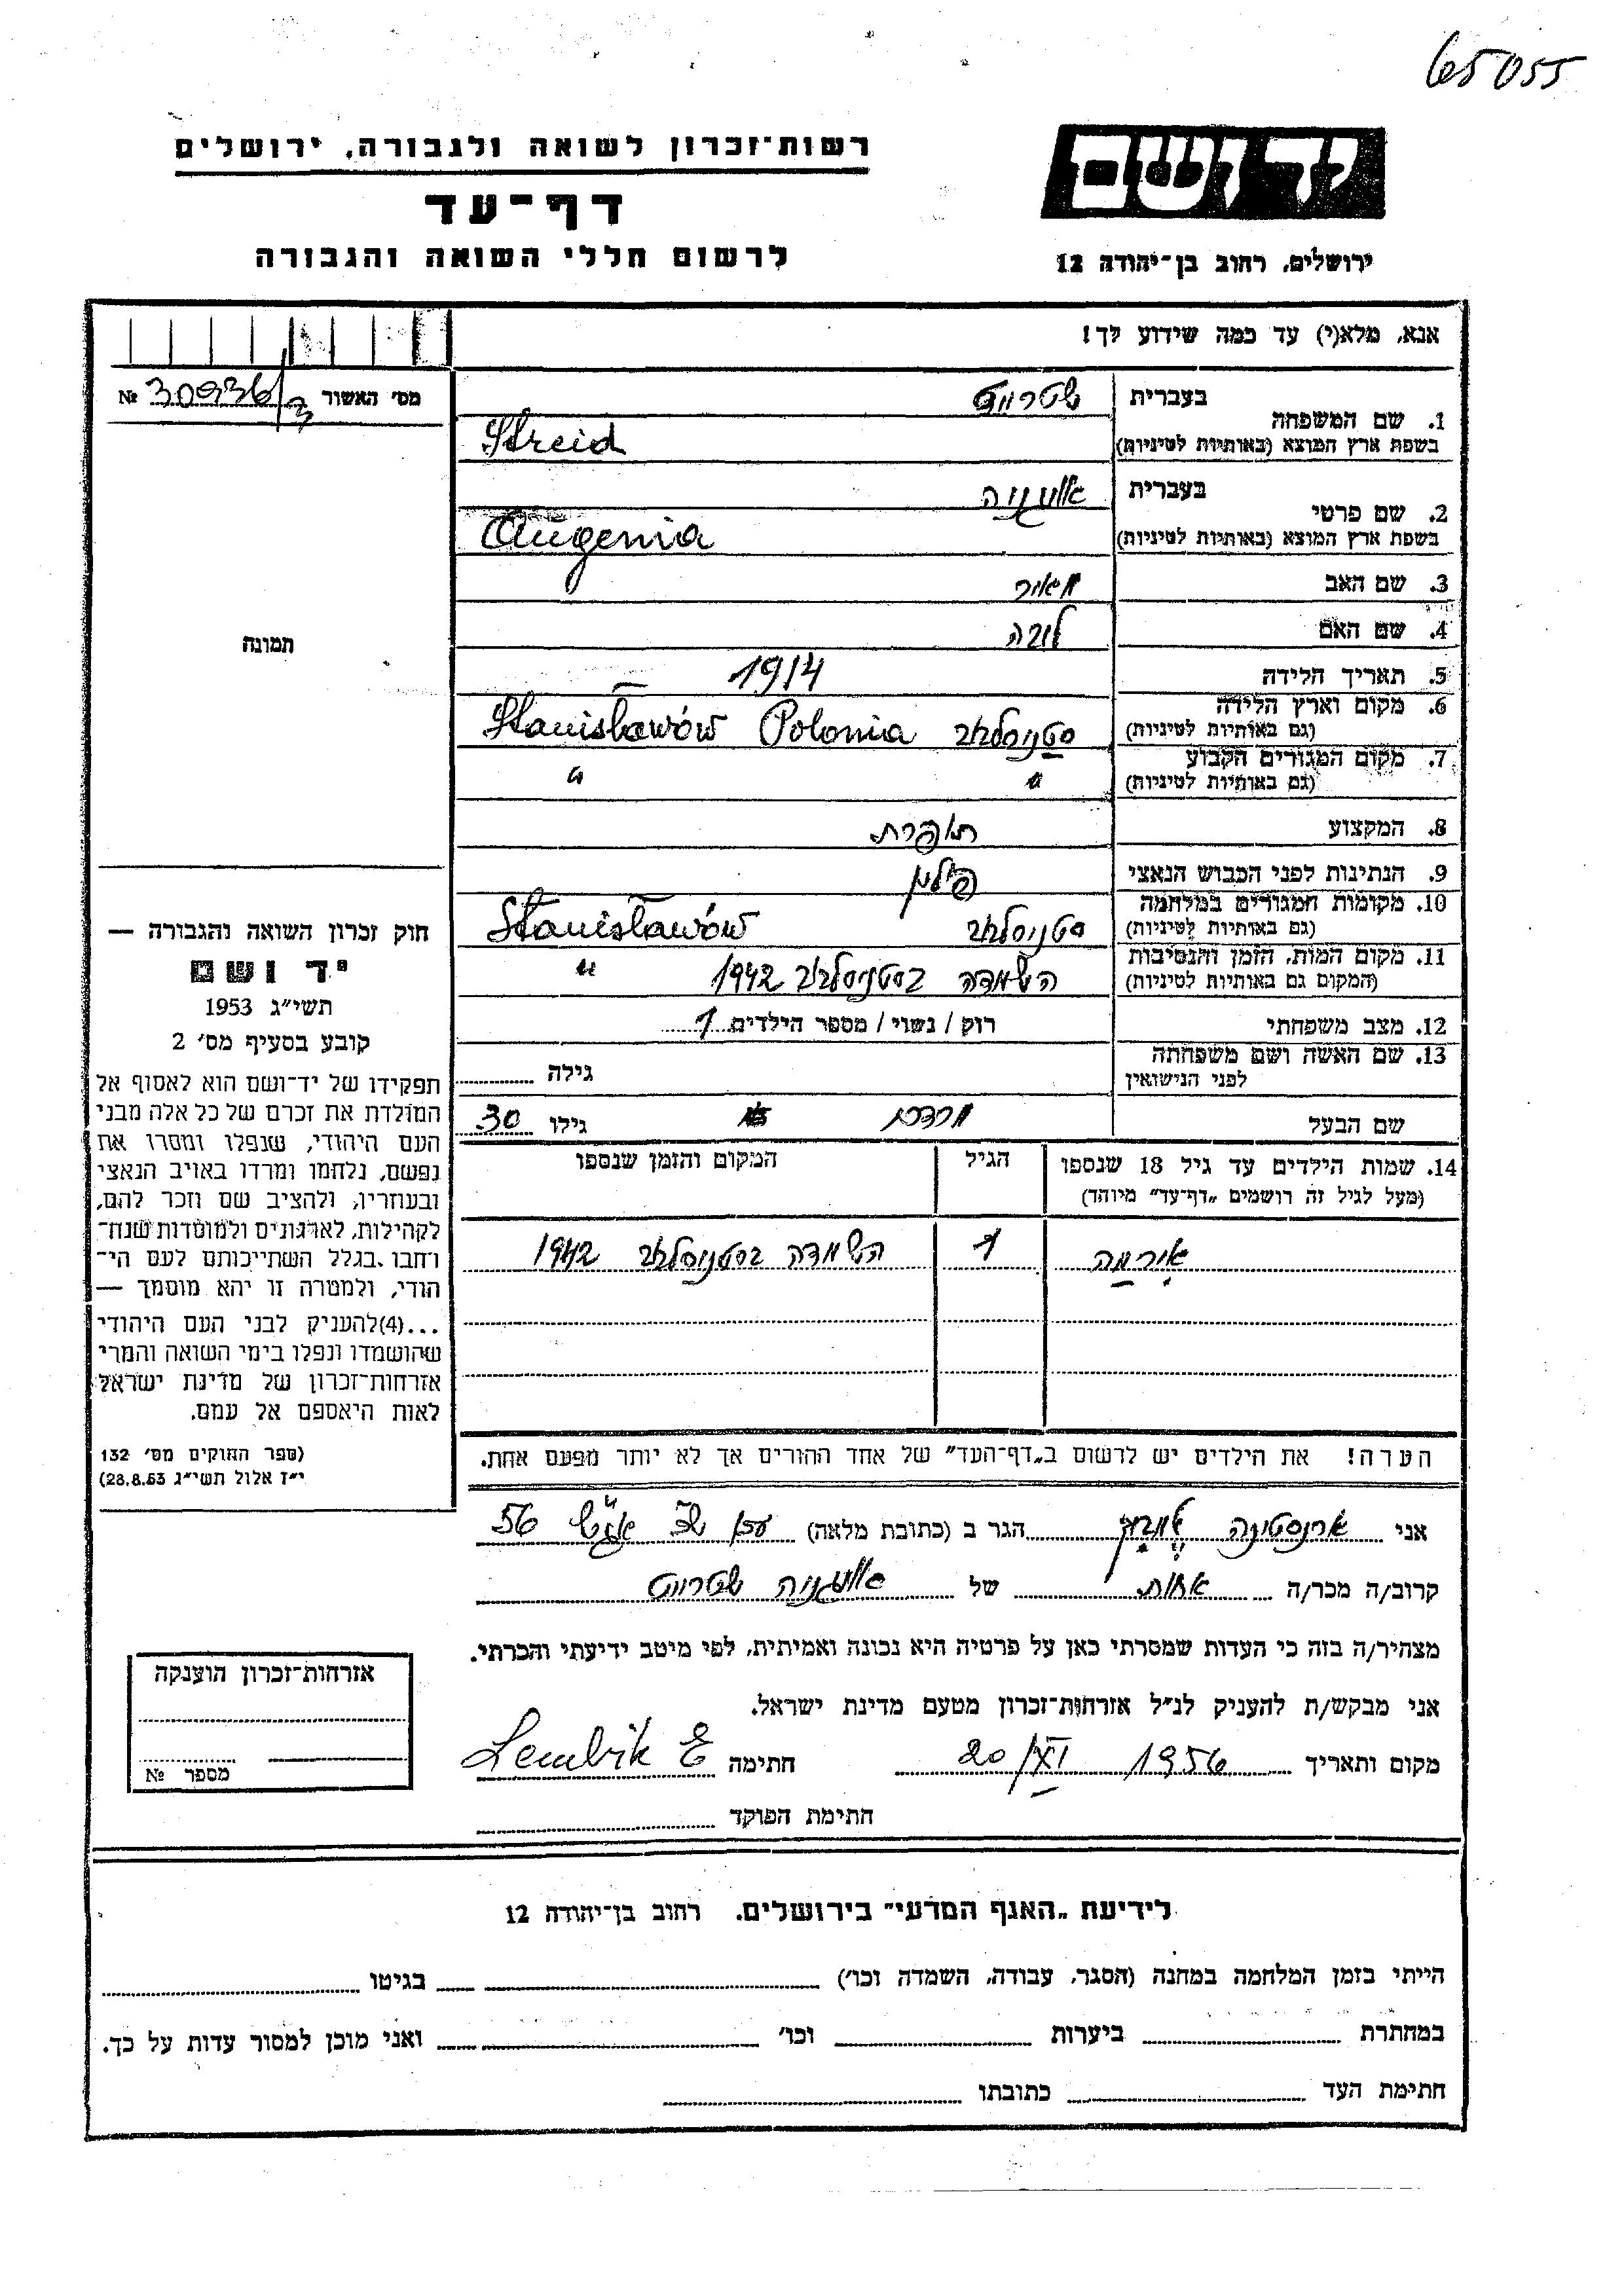 65055
יד ושם
רשות־זכרון לשואה ולגבורה, ירושלים
דף־עד
לרשום חללי השואה והגבורה
ירושלים, רחוב בן־יהודה 12
אנא, מלא(י) עד כמה שידוע לך!
מס׳ האשור № 30936/3
בעברית
1. שם המשפחה
בשפת ארץ המוצא (באותיות לטיניות) Streid
בעברית
2. שם פרטי
בשפת ארץ המוצא (באותיות לטיניות) Augenia
3. שם האב מאיר
4. שם האם לובה
5. תאריך הלידה 1914
6. מקום וארץ הלידה סטניסלבוב Polonia Stanisławów
(גם באותיות לטיניות)
7. מקום המגורים הקבוע " "
(גם באותיות לטיניות)
8. המקצוע תופרת
9. הנתינות לפני הכבוש הנאצי פולין
10. מקומות המגורים במלחמה סטניסלבוב Stanisławów
(גם באותיות לטיניות)
11. מקום המות, הזמן והנסיבות השמדה בסטניסלבוב 1942 "
(המקום גם באותיות לטיניות)
12. מצב משפחתי רוק / נשוי / מספר הילדים 1
13. שם האשה ושם משפחתה גילה
לפני הנישואין
שם הבעל מרדכי גילו 30
14. שמות הילדים עד גיל 18 שנספו הגיל המקום והזמן שנספו
(מעל לגיל זה רושמים „דף־עד” מיוחד)
אירמה 1 השמדה בסטניסלבוב 1942
הערה! את הילדים יש לרשום ב„דף־העד” של אחד ההורים אך לא יותר מפעם אחת.
תמונה
חוק זכרון השואה והגבורה —
יד ושם
תשי״ג 1953
קובע בסעיף מס׳ 2
תפקידו של יד־ושם הוא לאסוף אל
המולדת את זכרם של כל אלה מבני
העם היהודי, שנפלו ומסרו את
נפשם, נלחמו ומרדו באויב הנאצי
ובעוזריו, ולהציב שם וזכר להם,
לקהילות, לארגונים ולמוסדות שנח־
רחבו בגלל השתייכותם לעם הי־
הודי, ולמטרה זו יהא מוסמך —
...(4)להעניק לבני העם היהודי
שהושמדו ונפלו בימי השואה והמרי
אזרחות־זכרון של מדינת ישראל
לאות היאספם אל עמם.
(ספר החוקים מס׳ 132
י״ז אלול תשי״ג 28.8.53)
אני ארנסטינה הגר ב (כתובת מלאה) 56
קרוב/ה מכר/ה אחות של
מצהיר/ה בזה כי העדות שמסרתי כאן על פרטיה היא נכונה ואמיתית, לפי מיטב ידיעתי והכרתי.
אני מבקש/ת להעניק לנ״ל אזרחות־זכרון מטעם מדינת ישראל.
מקום ותאריך 20/XI 1956 חתימה Lembik E
חתימת הפוקד
אזרחות־זכרון הוענקה
מספר №
לידיעת „האגף המדעי” בירושלים, רחוב בן־יהודה 12
הייתי בזמן המלחמה במחנה (הסגר, עבודה, השמדה וכו׳) בגיטו
במחתרת ביערות וכו׳ ואני מוכן למסור עדות על כך.
חתימת העד כתובתו